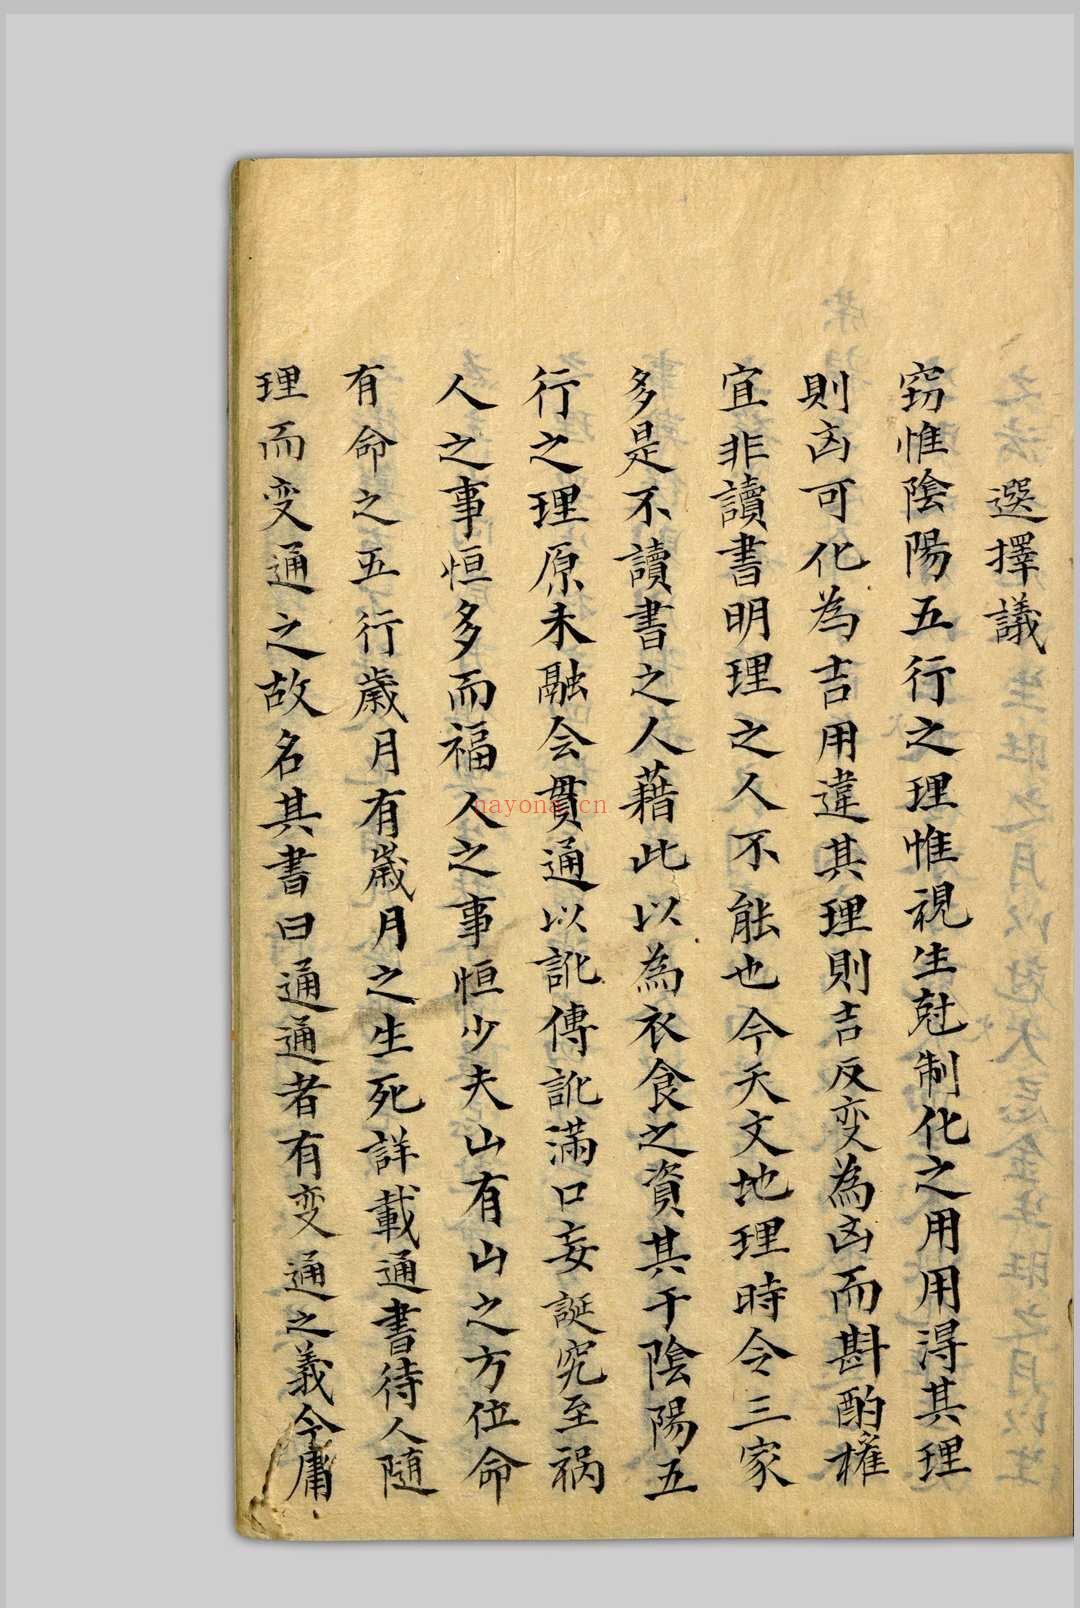 選擇議
窃惟陰陽五行之理惟視生尅制化之用用得其理
則凶可化為吉用違其理則吉反变為凶而斟酌權
宜非讀書明理之人不能也今天文地理時令三家
多是不讀書之人藉此以為衣食之資其于陰陽五
行之理原未融会貫通以訛傳訛滿口妄誕究至祸
人之事恒多而福人之事恒少夫山有山之方位命
有命之五行歲月有歲月之生死詳載通書待人随
理而变通之故名其書曰通通者有变通之義今庸
nayona.cn